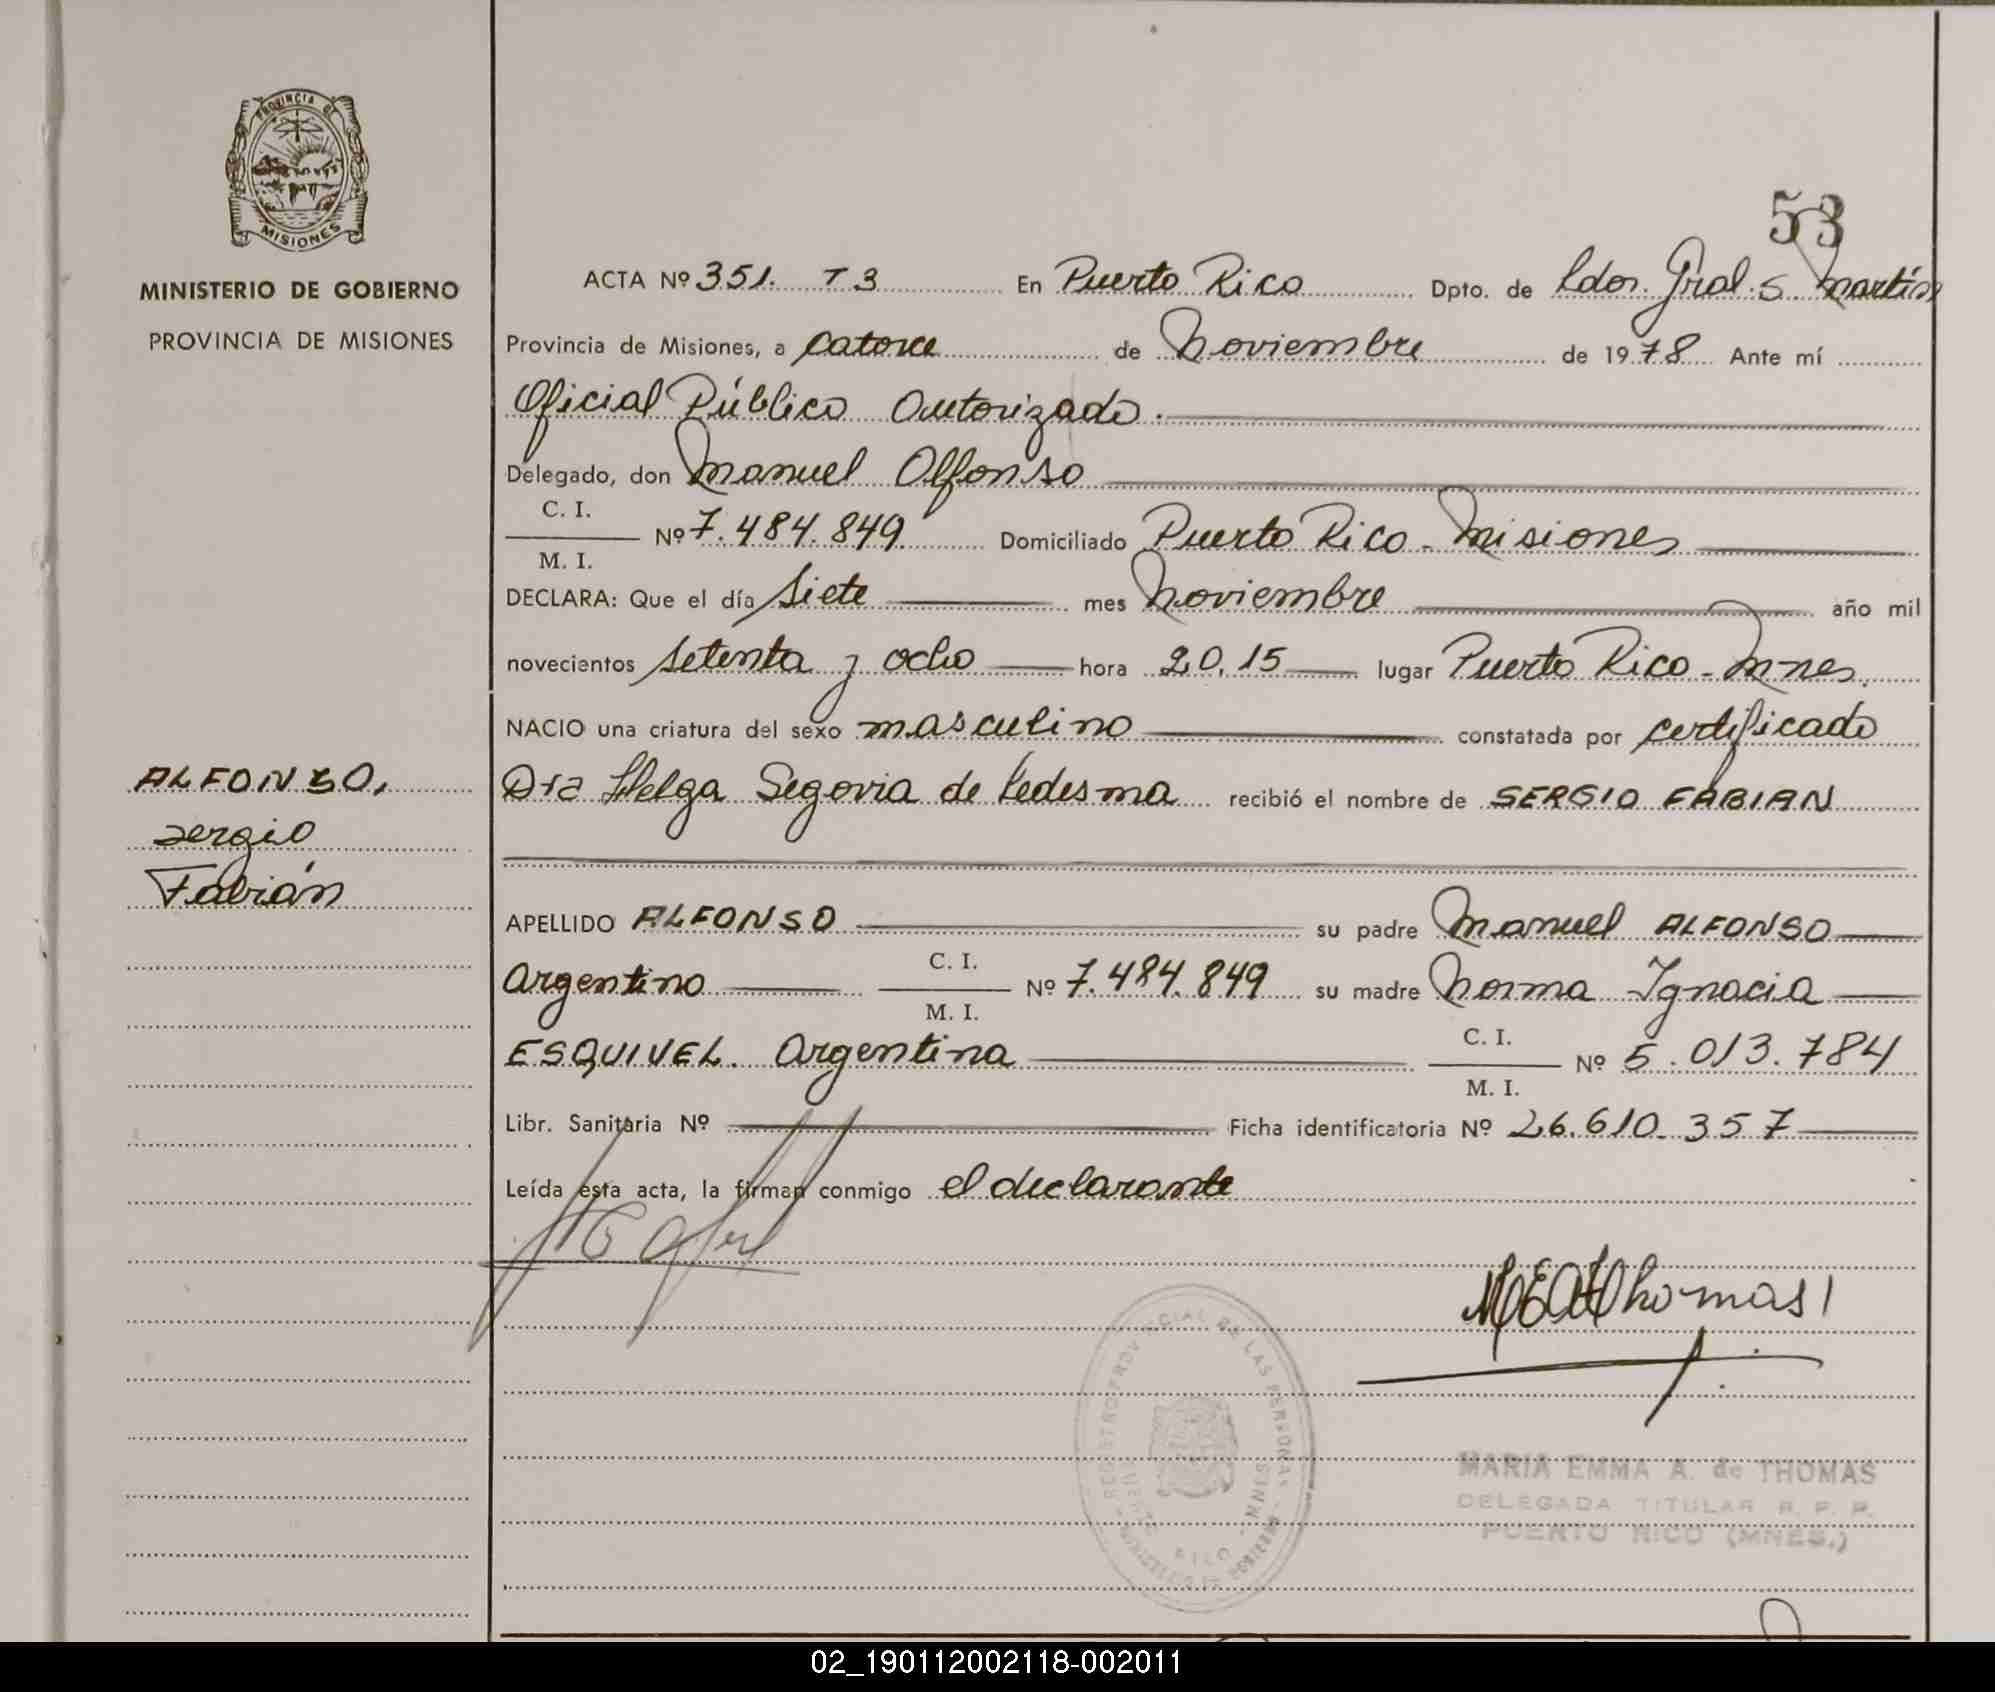 PROVINCIA DE
MISIONES
MINISTERIO DE GOBIERNO
PROVINCIA DE MISIONES
ALFONSO,
Sergio
Fabián
53
ACTA Nº 351. T 3 En Puerto Rico Dpto. de Ldor. Gral. S. Martín
Provincia de Misiones, a catorce de Noviembre de 1978 Ante mí
Oficial Público Autorizado.
Delegado, don Manuel Alfonso
C. I.
M. I.
Nº 7.484.849 Domiciliado Puerto Rico - Misiones
DECLARA: Que el día siete mes Noviembre año mil
novecientos setenta y ocho hora 20,15 lugar Puerto Rico - Mnes.
NACIO una criatura del sexo masculino constatada por certificado
Dra Helga Segovia de Ledesma recibió el nombre de SERGIO FABIAN
APELLIDO ALFONSO su padre Manuel ALFONSO
Argentino C. I. M. I. Nº 7.484.849 su madre Norma Ignacia
ESQUIVEL. Argentina C. I. M. I. Nº 5.013.784
Libr. Sanitaria Nº Ficha identificatoria Nº 26.610.357
Leída esta acta, la firman conmigo el declarante
MEAThomas
REGISTRO PROVINCIAL DE LAS PERSONAS
MARIA EMMA A. de THOMAS
DELEGADA TITULAR R. P. P.
PUERTO RICO (MNES.)
02_190112002118-002011